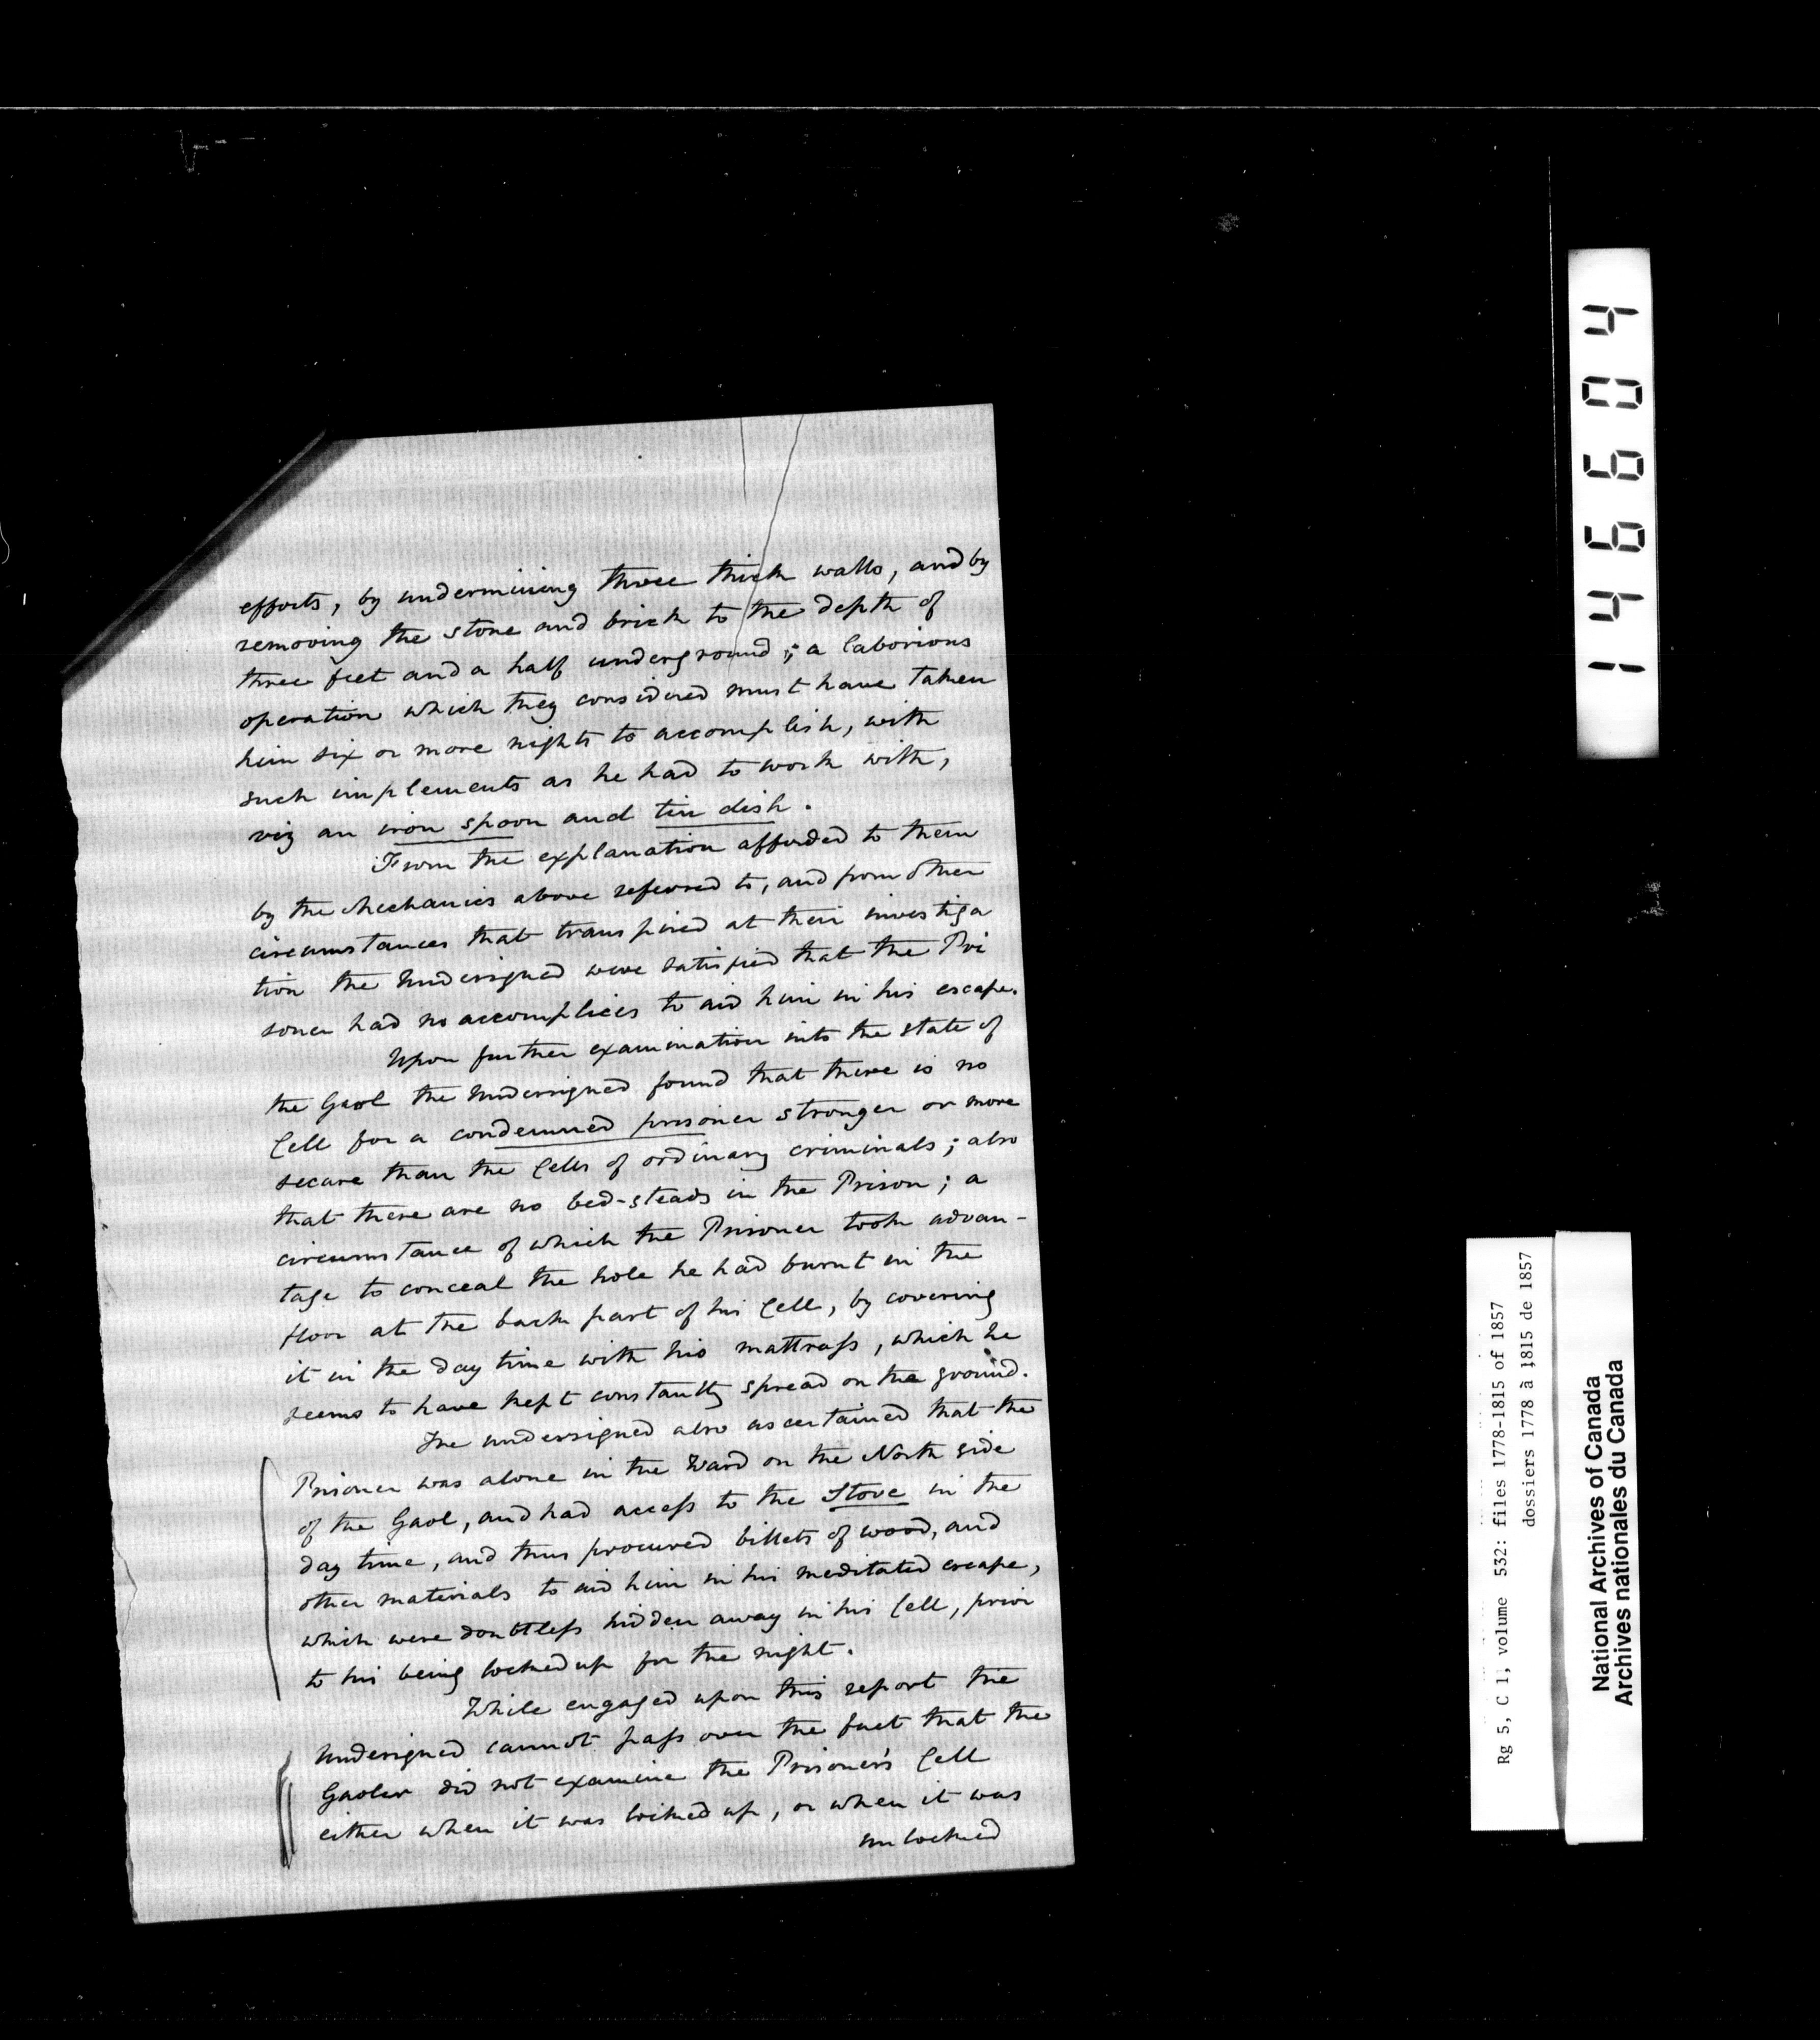 efforts, by undermining three thick walls, and by
removing the stone and brick to the depth of
three feet and a half underground; a laborious
operation which they considered must have taken
him six or more nights to accomplish, with
such implements as he had to work with,
viz an iron spoon and tin dish.
From the explanation afforded to them
by the Mechanics above referred to, and from other
circumstances that transpired at their investiga
tion the Undersigned were satisfied that the Pri
soner had no accomplices to aid him in his escape.
Upon further examination into the state of
the Gaol the Undersigned found that there is no
Cell for a condemned prisoner stronger or more
secure than the Cells of ordinary criminals; also
that there are no bed-steads in the Prison; a
circumstance of which the Prisoner took advan-
tage to conceal the hole he had burnt in the
floor at the back part of his Cell, by covering
it in the day time with his mattrass, which he
seems to have kept constantly spread on the ground.
The undersigned also ascertained that the
Prisoner was alone in the Ward on the North side
of the Gaol, and had access to the Stove in the
day time, and thus procured billets of wood, and
other materials to aid him in his meditated escape,
which were doubtless hidden away in his Cell, prior
to his being locked up for the night.
While engaged upon this report the
Undersigned cannot pass over the fact that the
Gaoler did not examine the Prisoner's Cell
either when it was locked up, or when it was
unlocked
146604
Rg 5, C 1, volume 532: files 1778-1815 of 1857
dossiers 1778 à 1815 de 1857
National Archives of Canada
Archives nationales du Canada